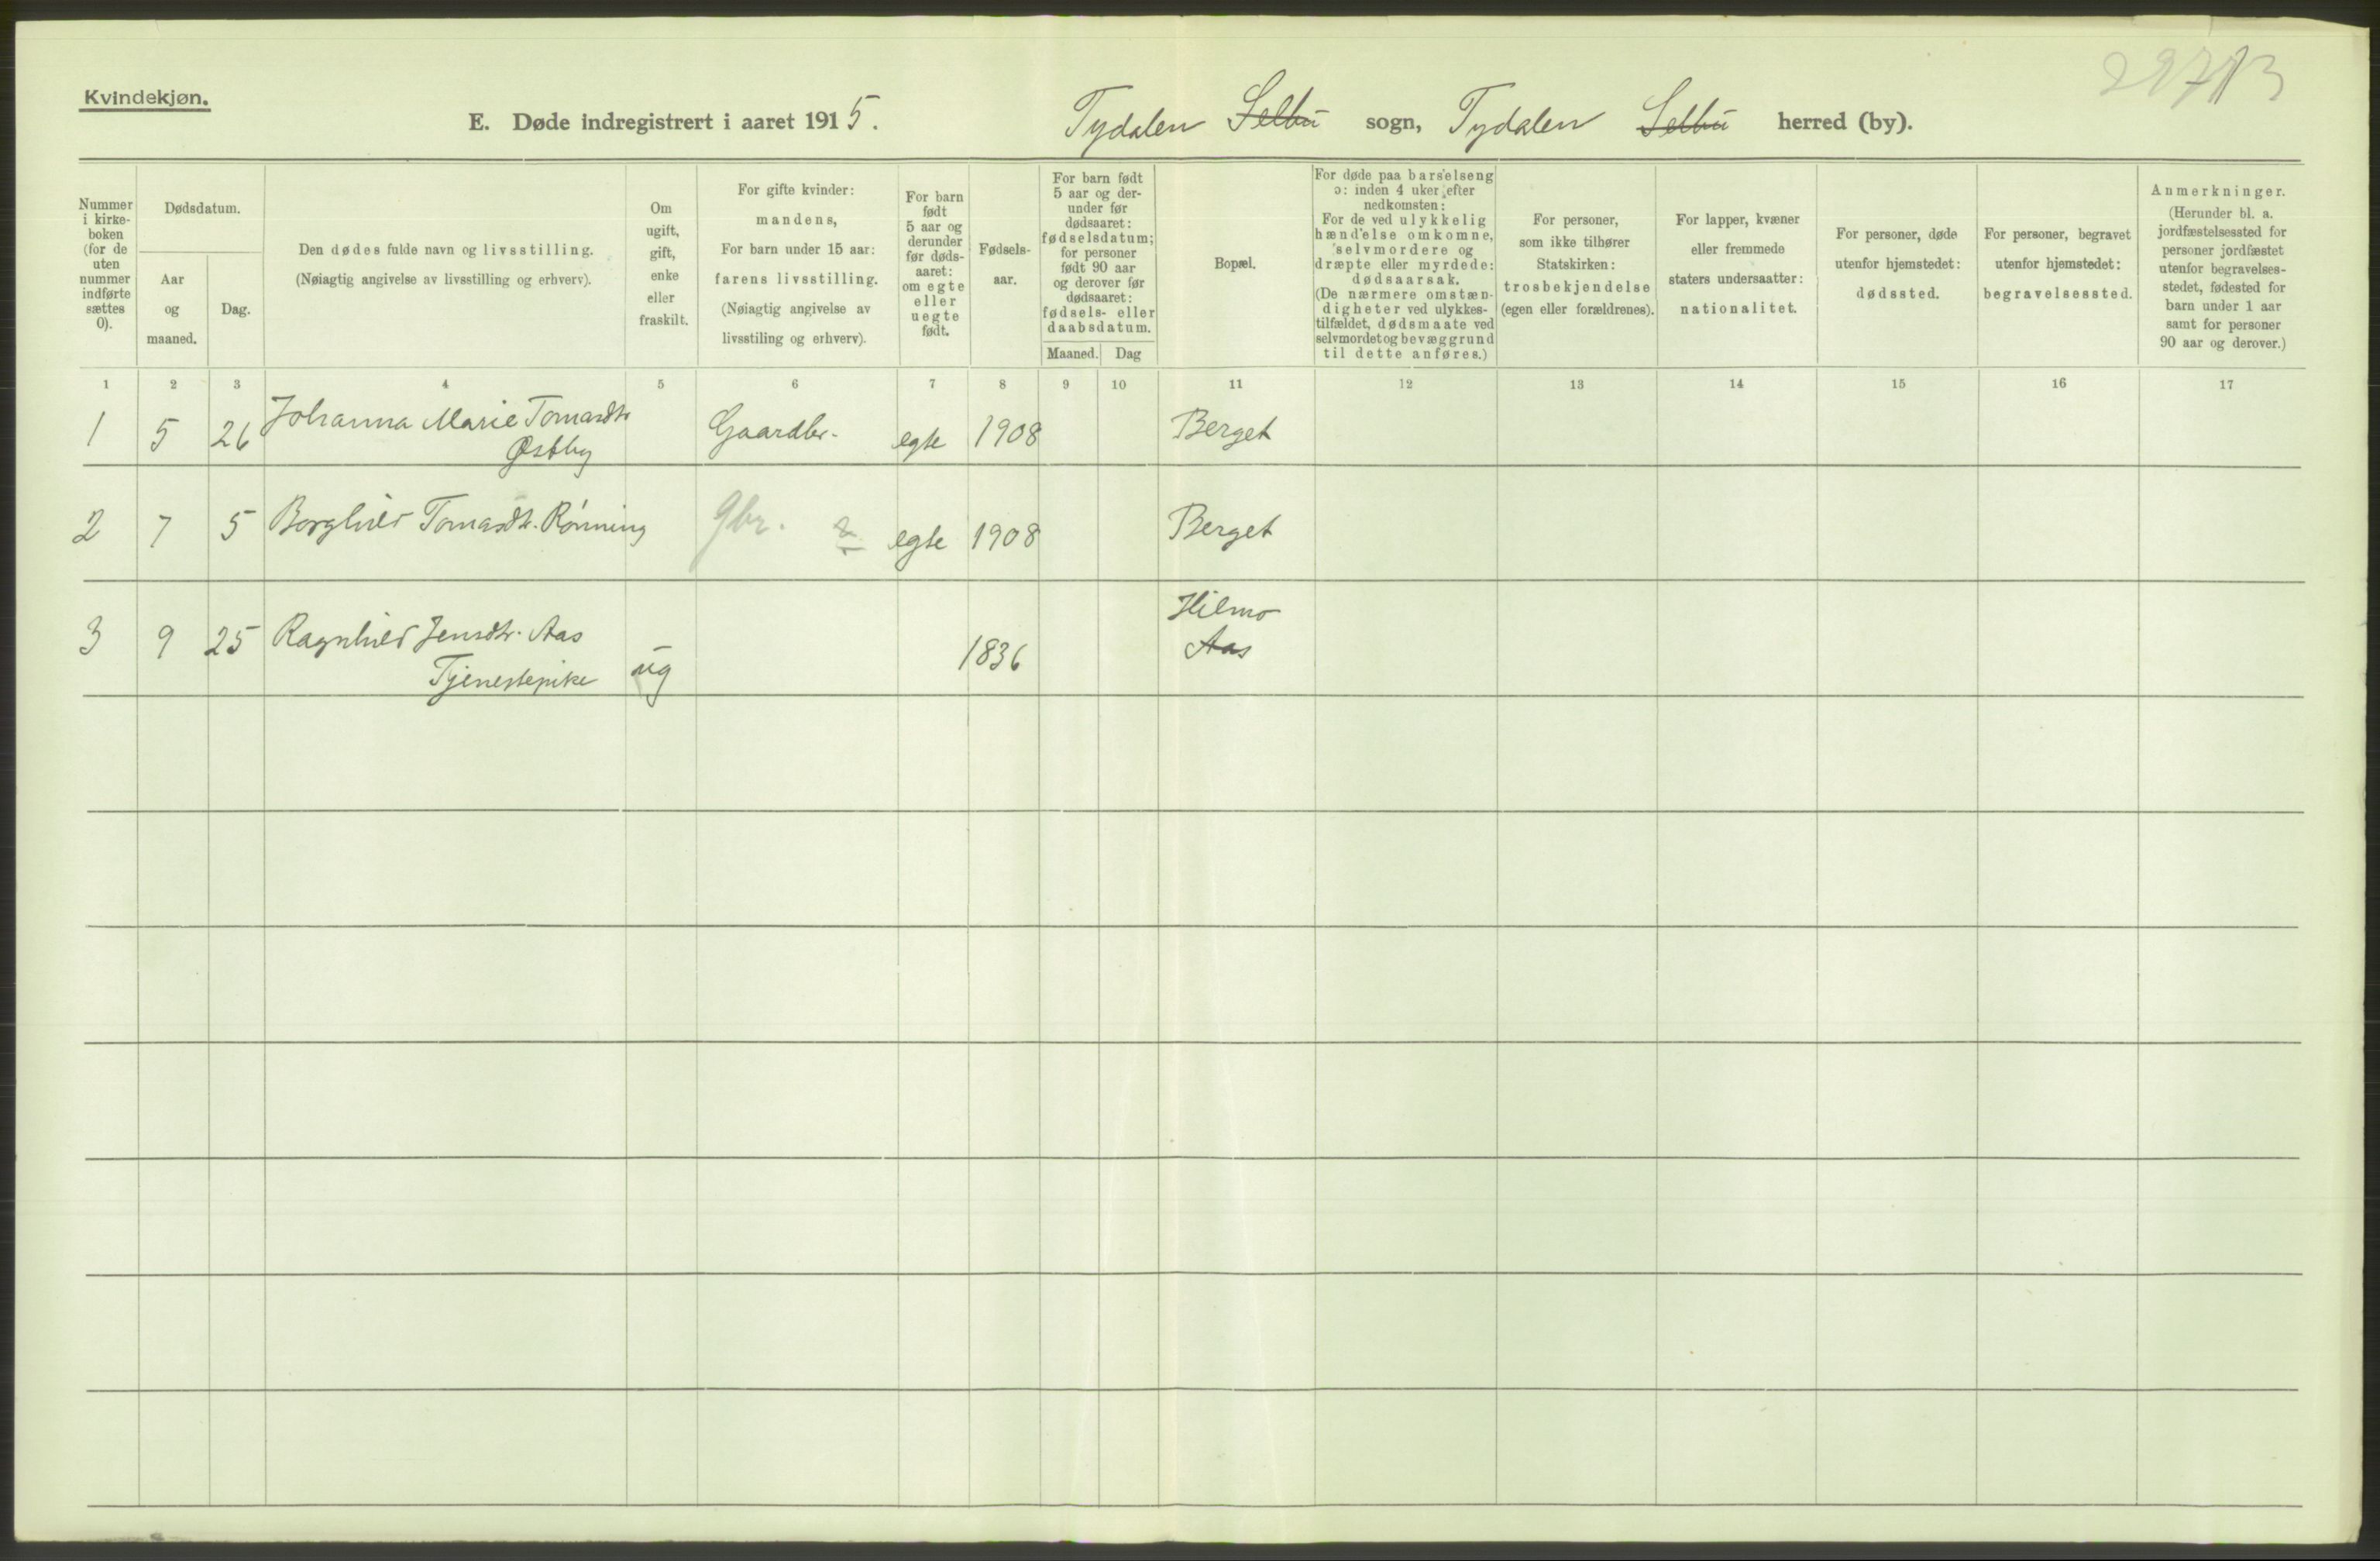 Kvindekjøn.
E. Døde indregistrert i aaret 1915. Tydalen Selbu sogn, Tydalen Selbu herred (by).
Nummer
i kirke-
boken
(for de
uten
nummer
indførte
sættes
0).
Dødsdatum.
Aar
og
maaned.
Dag.
Den dødes fulde navn og livsstilling.
(Nøiagtig angivelse av livsstilling og erhverv).
Om
ugift,
gift,
enke
eller
fraskilt.
For gifte kvinder:
mandens,
For barn under 15 aar:
farens livsstilling.
(Nøiagtig angivelse av
livsstiling og erhverv).
For barn
født
5 aar og
derunder
før døds-
aaret:
om egte
eller
uegte
født.
Fødsels-
aar.
For barn født
5 aar og der-
under før
dødsaaret:
fødselsdatum;
for personer
født 90 aar
og derover før
dødsaaret:
fødsels- eller
daabsdatum.
Maaned. Dag
Bopæl.
For døde paa barselseng
ɔ: inden 4 uker efter
nedkomsten:
For de ved ulykkelig
hændelse omkomne,
selvmordere og
dræpte eller myrdede:
dødsaarsak.
(De nærmere omstæn-
digheter ved ulykkes-
tilfældet, dødsmaate ved
selvmordet og bevæggrund
til dette anføres.)
For personer,
som ikke tilhører
Statskirken:
trosbekjendelse
(egen eller forældrenes).
For lapper, kvæner
eller fremmede
staters undersaatter:
nationalitet.
For personer, døde
utenfor hjemstedet:
dødssted.
For personer, begravet
utenfor hjemstedet:
begravelsessted.
Anmerkninger.
(Herunder bl. a.
jordfæstelsessted for
personer jordfæstet
utenfor begravelses-
stedet, fødested for
barn under 1 aar
samt for personer
90 aar og derover.)
1 2 3 4 5 6 7 8 9 10 11 12 13 14 15 16 17
1 5 26 Johanna Marie Tomasdtr Gaardbr. egte 1908 Berget
Østby
2 7 5 Borghild Tomasdtr. Rønning Gbr. egte 1908 Berget
3 9 25 Ragnhild Jensdtr. Aas ug 1836 Hilmo
Tjenestepike Aas